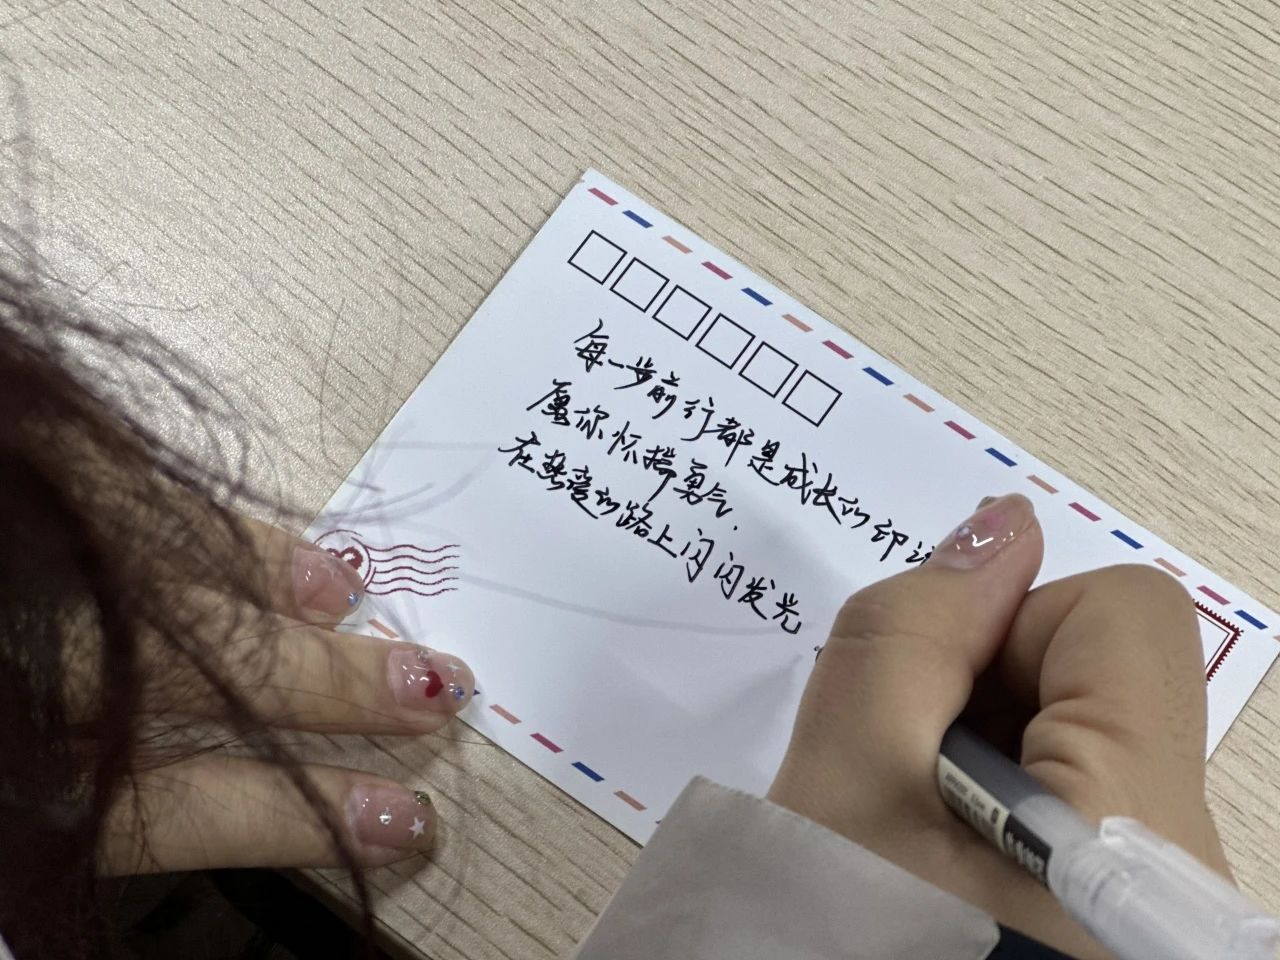 每一步前行都是成长的印
愿你怀揣勇气,
在热爱的路上闪闪发光